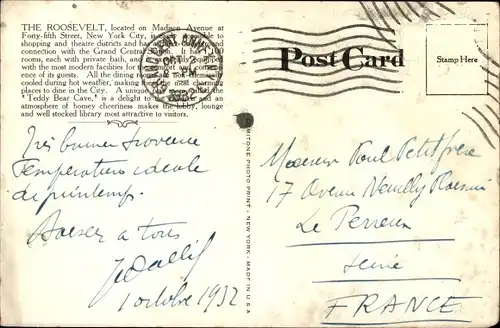 THE ROOSEVELT, located on Madison Avenue at
Forty-fifth Street, New York City, is
shopping and theatre districts and has
connection with the Grand Central It has 1,100
rooms, each with private bath, and
with the most modern facilities for the comfort and
ence of its guests. All the dining
cooled during hot weather, making the most charming
places to dine in the City. A unique called the
"Teddy Bear Cave," is a delight to the and an
atmosphere of homey cheerriness makes the lobby, lounge
and well stocked library most attractive to visitors.
Post Card
Stamp Here
LUMITONE PHOTOPRINT - NEW YORK - MADE IN U.S.A.
Très bonne
Temperature ideale
de printemps.
Baiser a tous
1 octobre 1932
Monsieur Paul Petitfrère
17 Avenue Neuilly Plaisance
Le Perreux
Seine
FRANCE